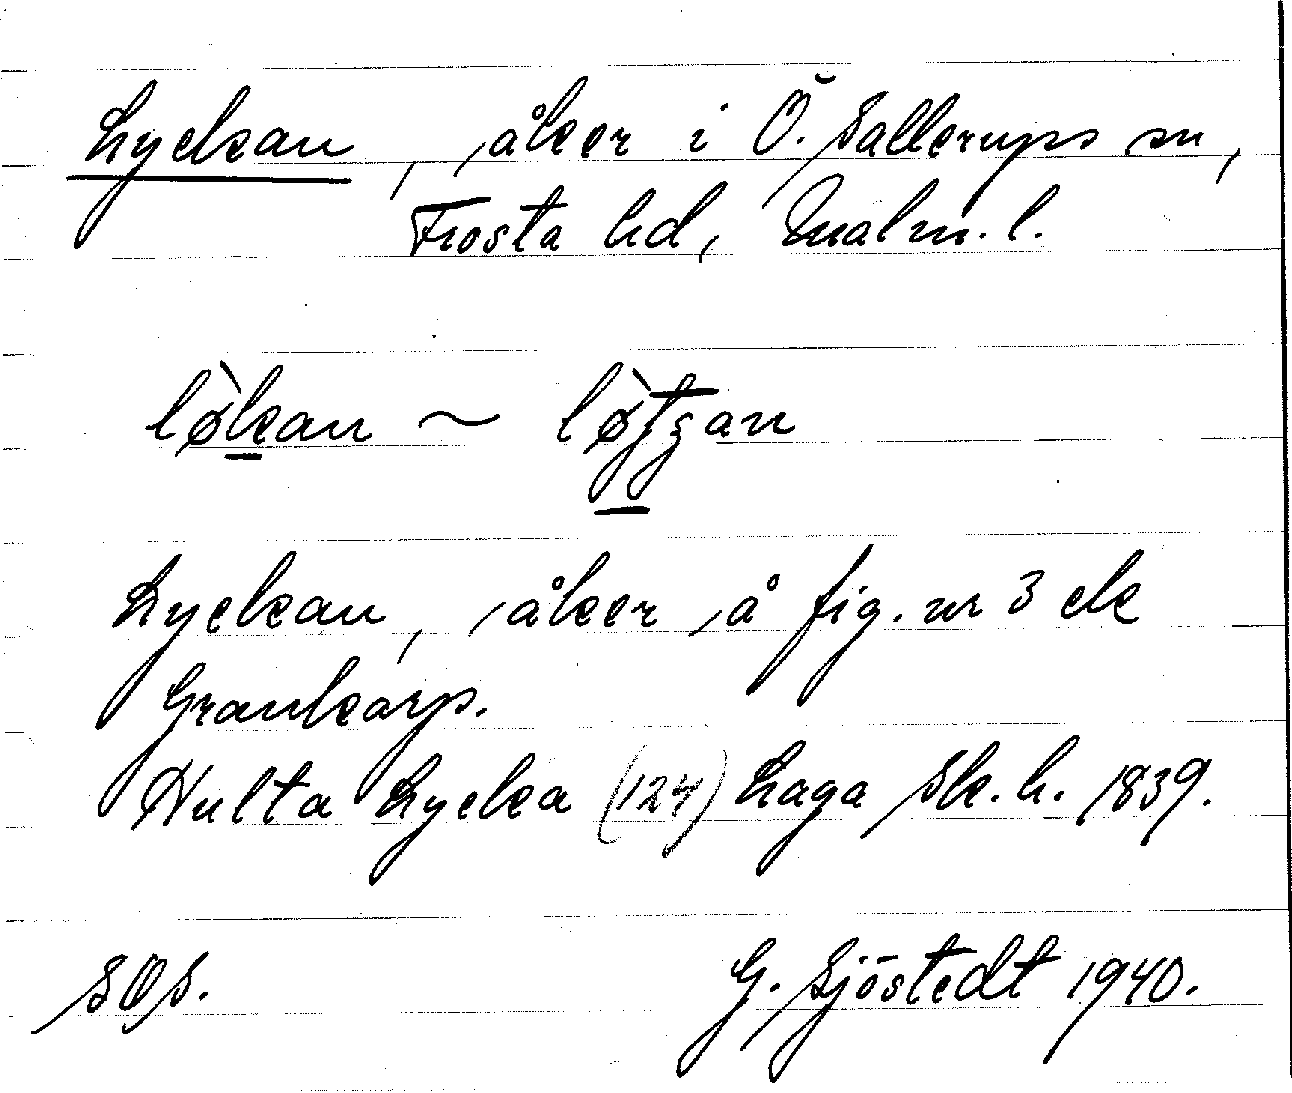 Lyckan, åker i Ö. Sallerups sn,
Frosta hd, Malm. l.
lø̀kan ~
Lyckan, åker å fig. nr 3 ck
Grankarp.
Hulta Lycka (124) Laga sk. h. 1839.
SOS. G. Sjöstedt 1940.